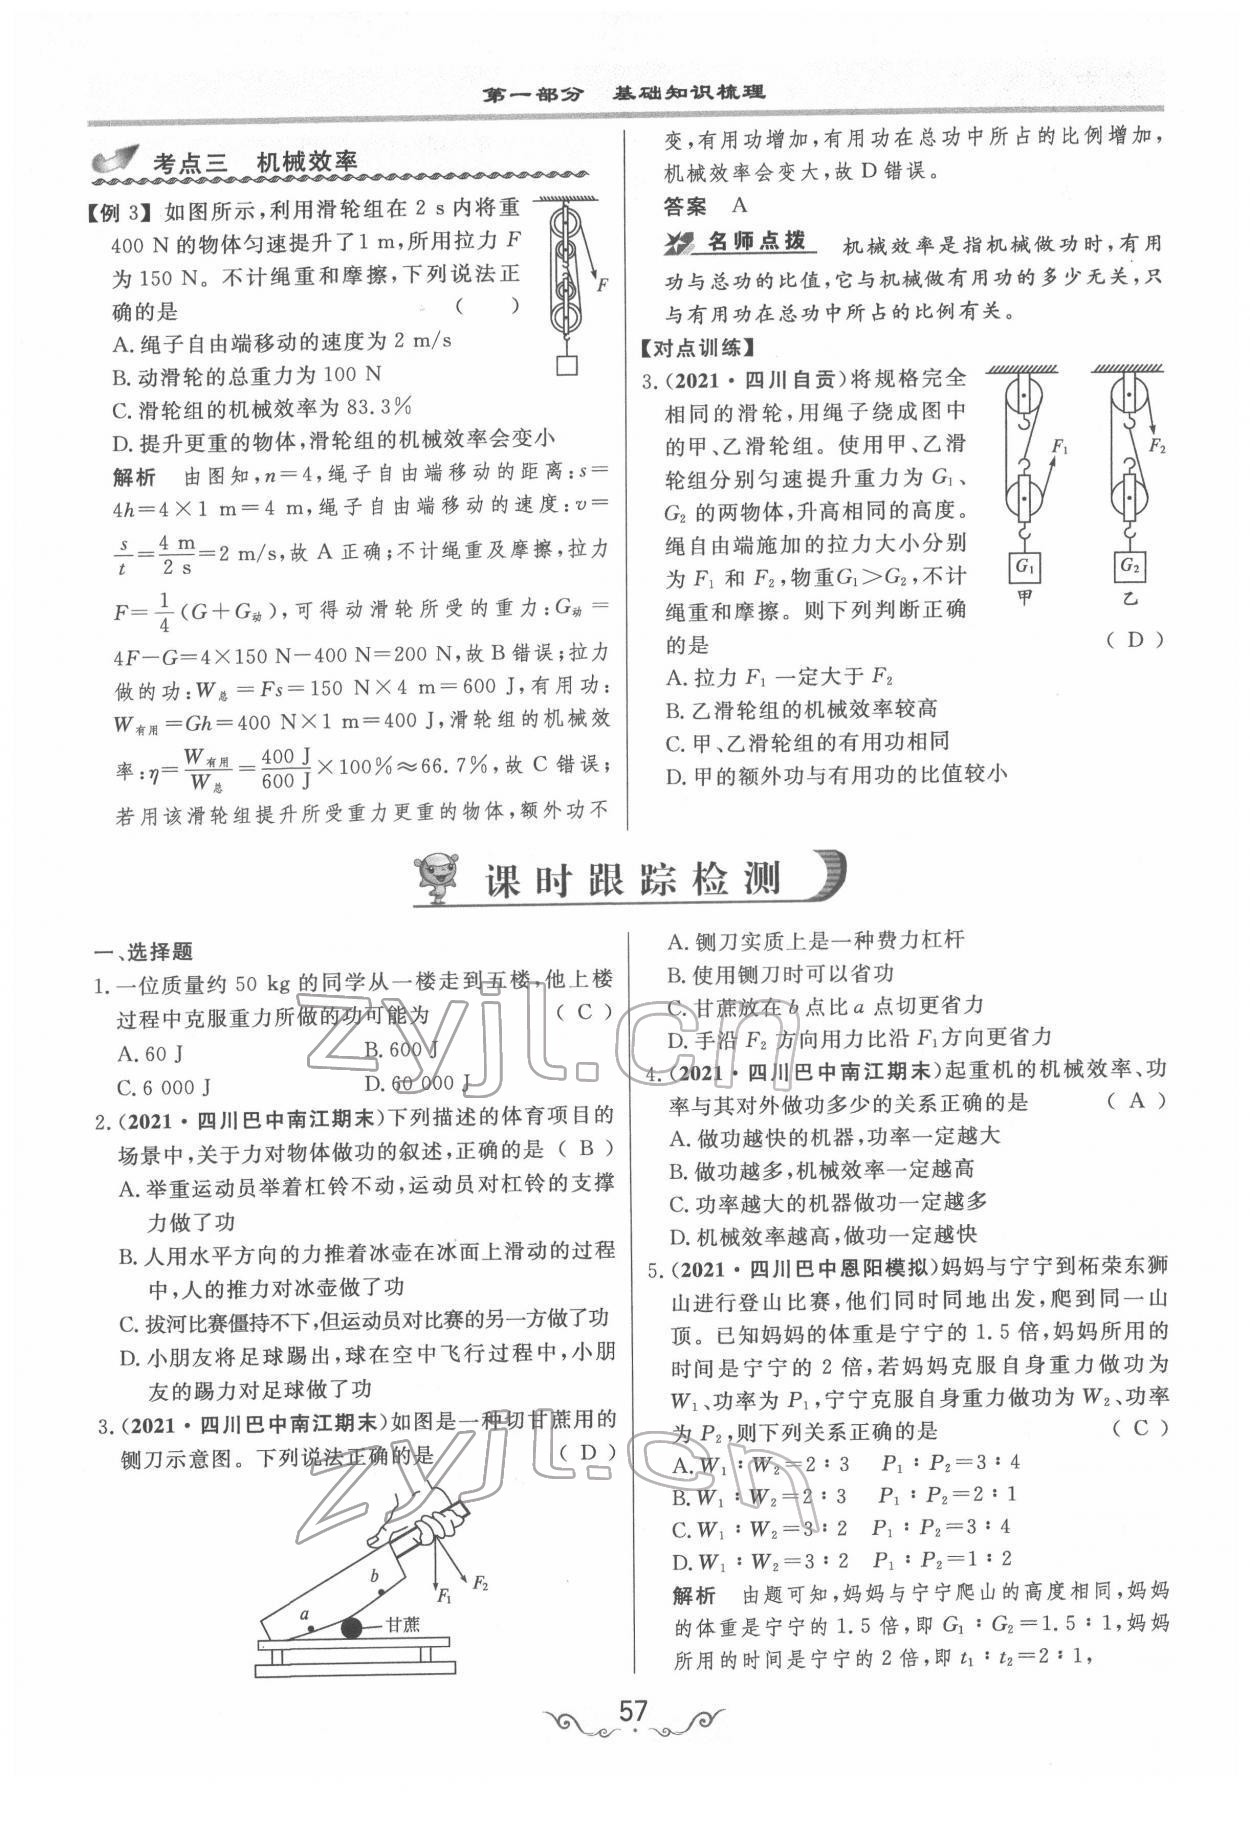 第一部分 基础知识梳理
考点三 机械效率
【例 3】如图所示,利用滑轮组在 2 s 内将重
400 N 的物体匀速提升了1 m,所用拉力 F
为 150 N。不计绳重和摩擦,下列说法正
确的是 ( )
F
A.绳子自由端移动的速度为 2 m/s
B.动滑轮的总重力为 100 N
C.滑轮组的机械效率为 83.3%
D.提升更重的物体,滑轮组的机械效率会变小
解析 由图知,n=4,绳子自由端移动的距离:s=
4h=4×1 m=4 m,绳子自由端移动的速度:v=
s/t=4 m/2 s=2 m/s,故 A 正确;不计绳重及摩擦,拉力
F=1/4(G+G动),可得动滑轮所受的重力:G动=
4F-G=4×150 N-400 N=200 N,故 B 错误;拉力
做的功:W总=Fs=150 N×4 m=600 J,有用功:
W有用=Gh=400 N×1 m=400 J,滑轮组的机械效
率:η=W有用/W总=400 J/600 J×100%≈66.7%,故 C 错误;
若用该滑轮组提升所受重力更重的物体,额外功不
变,有用功增加,有用功在总功中所占的比例增加,
机械效率会变大,故 D 错误。
答案 A
名师点拨 机械效率是指机械做功时,有用
功与总功的比值,它与机械做有用功的多少无关,只
与有用功在总功中所占的比例有关。
【对点训练】
3.(2021·四川自贡)将规格完全
相同的滑轮,用绳子绕成图中
的甲、乙滑轮组。使用甲、乙滑
轮组分别匀速提升重力为 G₁、
G₂ 的两物体,升高相同的高度。
绳自由端施加的拉力大小分别
为 F₁ 和 F₂,物重G₁>G₂,不计
绳重和摩擦。则下列判断正确
的是 ( D )
F₁ F₂
G₁ G₂
甲 乙
A.拉力 F₁ 一定大于 F₂
B.乙滑轮组的机械效率较高
C.甲、乙滑轮组的有用功相同
D.甲的额外功与有用功的比值较小
课时跟踪检测
一、选择题
1.一位质量约 50 kg 的同学从一楼走到五楼,他上楼
过程中克服重力所做的功可能为 ( C )
A.60 J B.600 J
C.6 000 J D.60 000 J
2.(2021·四川巴中南江期末)下列描述的体育项目的
场景中,关于力对物体做功的叙述,正确的是 ( B )
A.举重运动员举着杠铃不动,运动员对杠铃的支撑
力做了功
B.人用水平方向的力推着冰壶在冰面上滑动的过程
中,人的推力对冰壶做了功
C.拔河比赛僵持不下,但运动员对比赛的另一方做了功
D.小朋友将足球踢出,球在空中飞行过程中,小朋
友的踢力对足球做了功
3.(2021·四川巴中南江期末)如图是一种切甘蔗用的
铡刀示意图。下列说法正确的是 ( D )
a b F₁ F₂
甘蔗
A.铡刀实质上是一种费力杠杆
B.使用铡刀时可以省功
C.甘蔗放在 b 点比 a 点切更省力
D.手沿 F₂ 方向用力比沿 F₁方向更省力
4.(2021·四川巴中南江期末)起重机的机械效率、功
率与其对外做功多少的关系正确的是 ( A )
A.做功越快的机器,功率一定越大
B.做功越多,机械效率一定越高
C.功率越大的机器做功一定越多
D.机械效率越高,做功一定越快
5.(2021·四川巴中恩阳模拟)妈妈与宁宁到柘荣东狮
山进行登山比赛,他们同时同地出发,爬到同一山
顶。已知妈妈的体重是宁宁的 1.5 倍,妈妈所用的
时间是宁宁的 2 倍,若妈妈克服自身重力做功为
W₁、功率为 P₁,宁宁克服自身重力做功为 W₂、功率
为 P₂,则下列关系正确的是 ( C )
A.W₁∶W₂=2∶3 P₁∶P₂=3∶4
B.W₁∶W₂=2∶3 P₁∶P₂=2∶1
C.W₁∶W₂=3∶2 P₁∶P₂=3∶4
D.W₁∶W₂=3∶2 P₁∶P₂=1∶2
解析 由题可知,妈妈与宁宁爬山的高度相同,妈妈
的体重是宁宁的 1.5 倍,即 G₁∶G₂=1.5∶1,妈妈
所用的时间是宁宁的 2 倍,即 t₁∶t₂=2∶1,
57
zyjl.cn
zyjl.cn